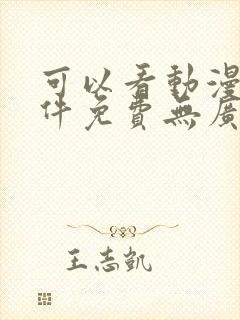 可以看動漫
件免費無廣
王志凱